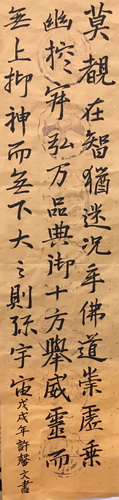 莫覩在智猶迷況乎佛道崇虛乘
幽控寂弘万品典御十方舉威靈而
無上抑神而無下大之則弥宇宙戊戌年許馨文書